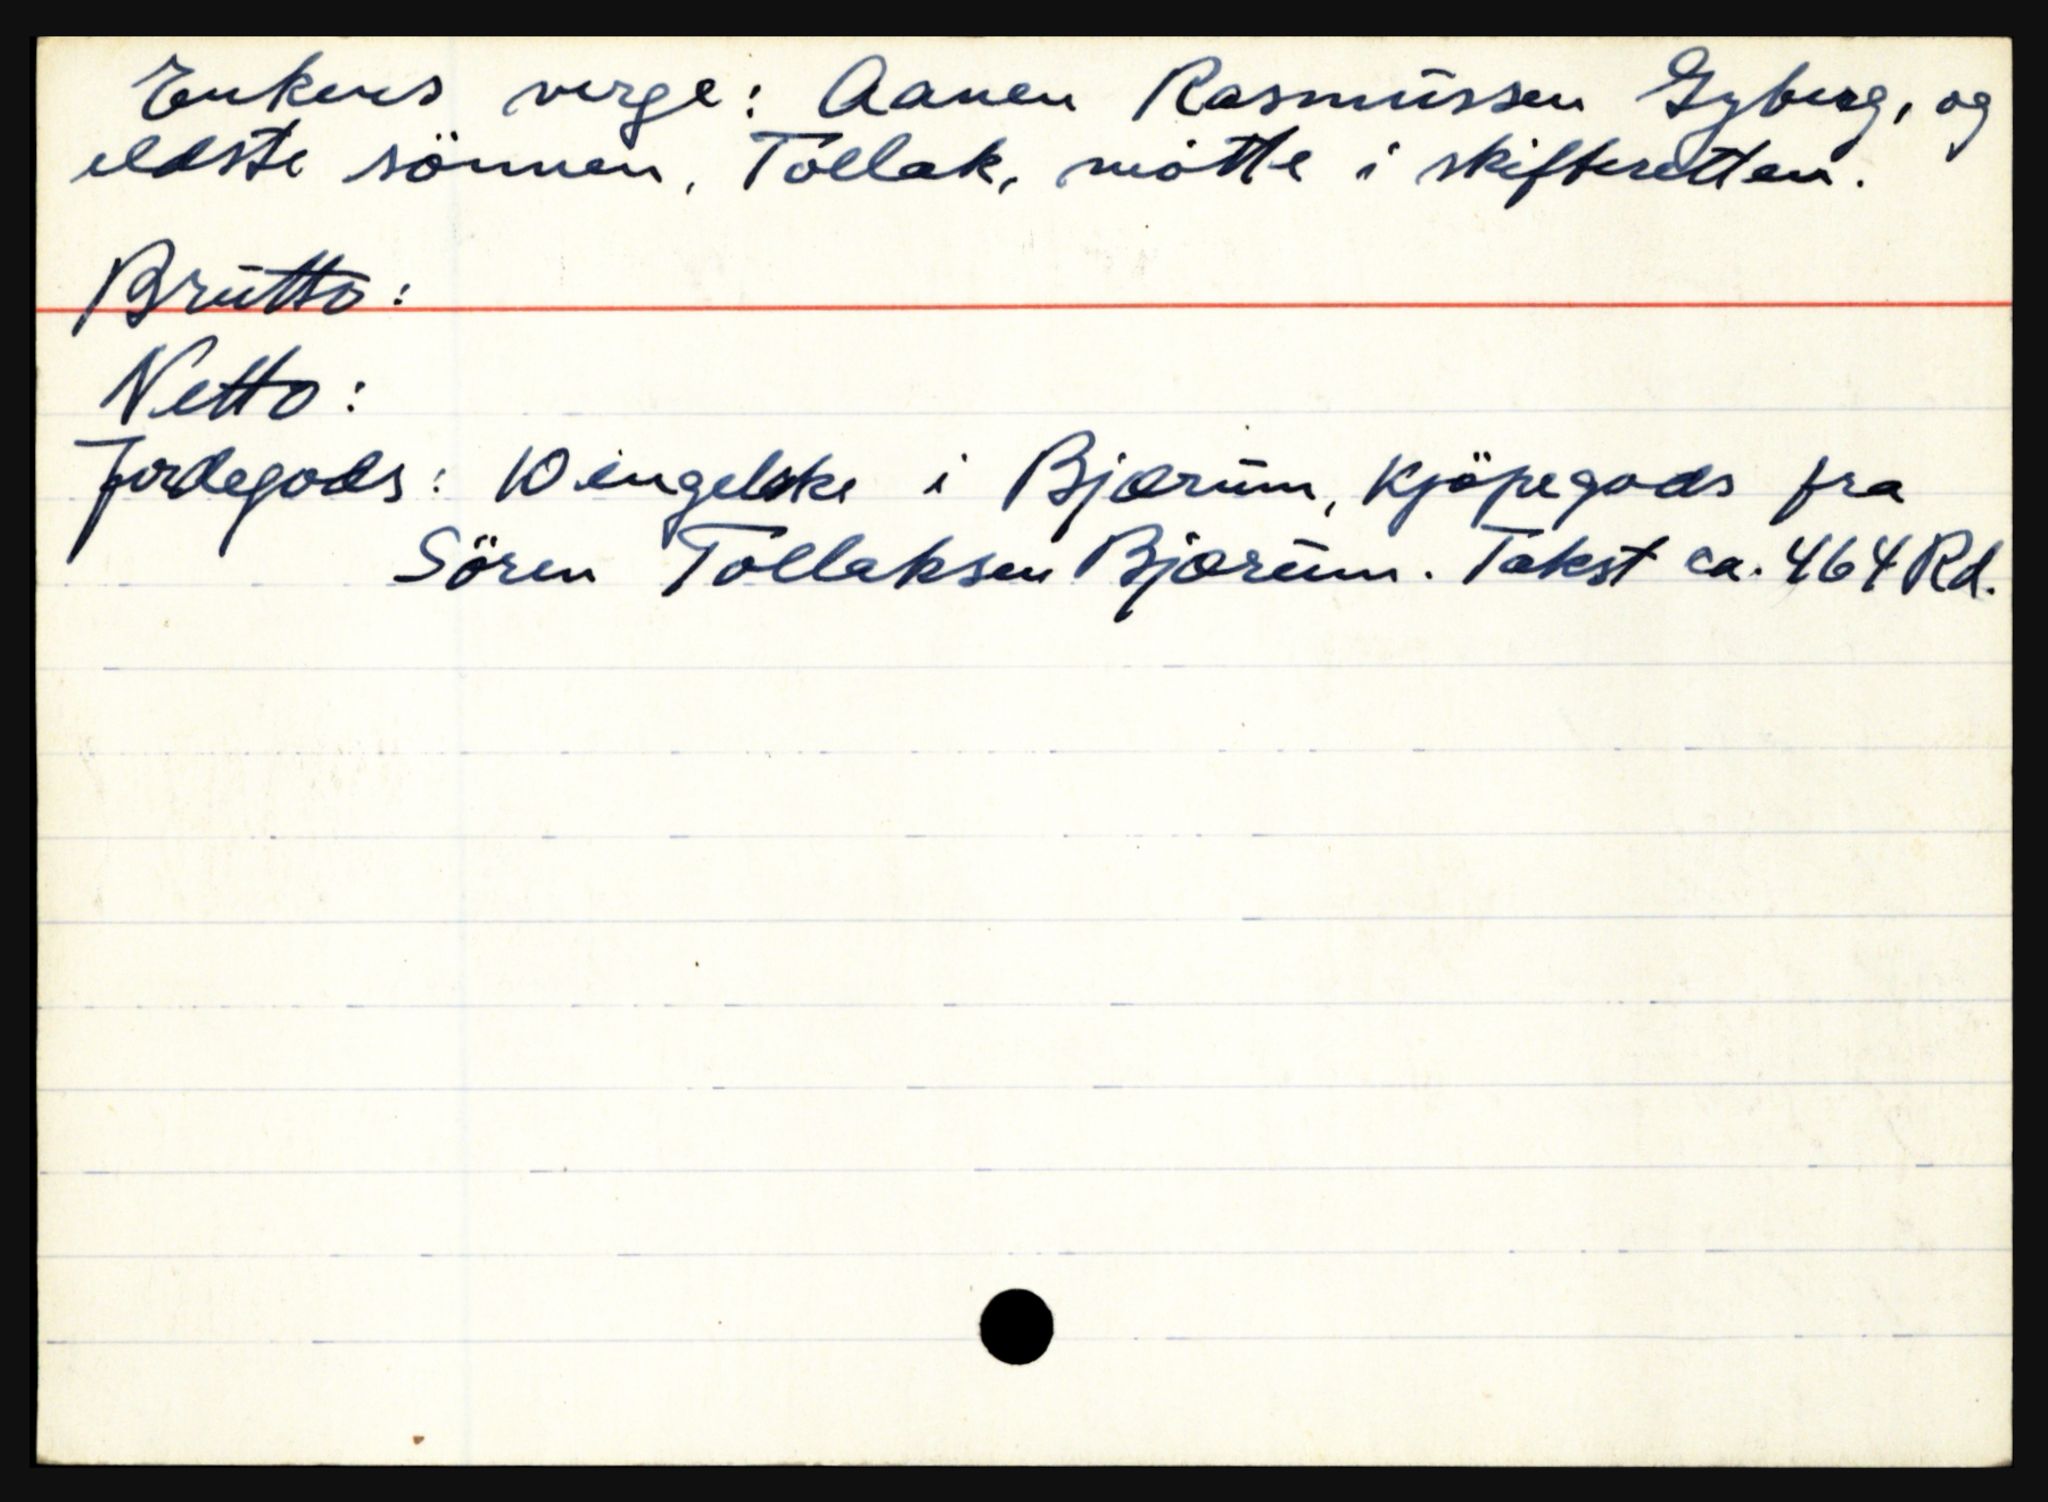 Enkens verge: Aanen Rasmussen Gyberg, og
eldste sönnen, Tollak, mötte i skifteretten.
Brutto:
Netto:
Jordegods: 10 engelske i Bjærum, Kjöpegods fra
Sören Tollaksen Bjærum. Takst ca. 464 Rd.